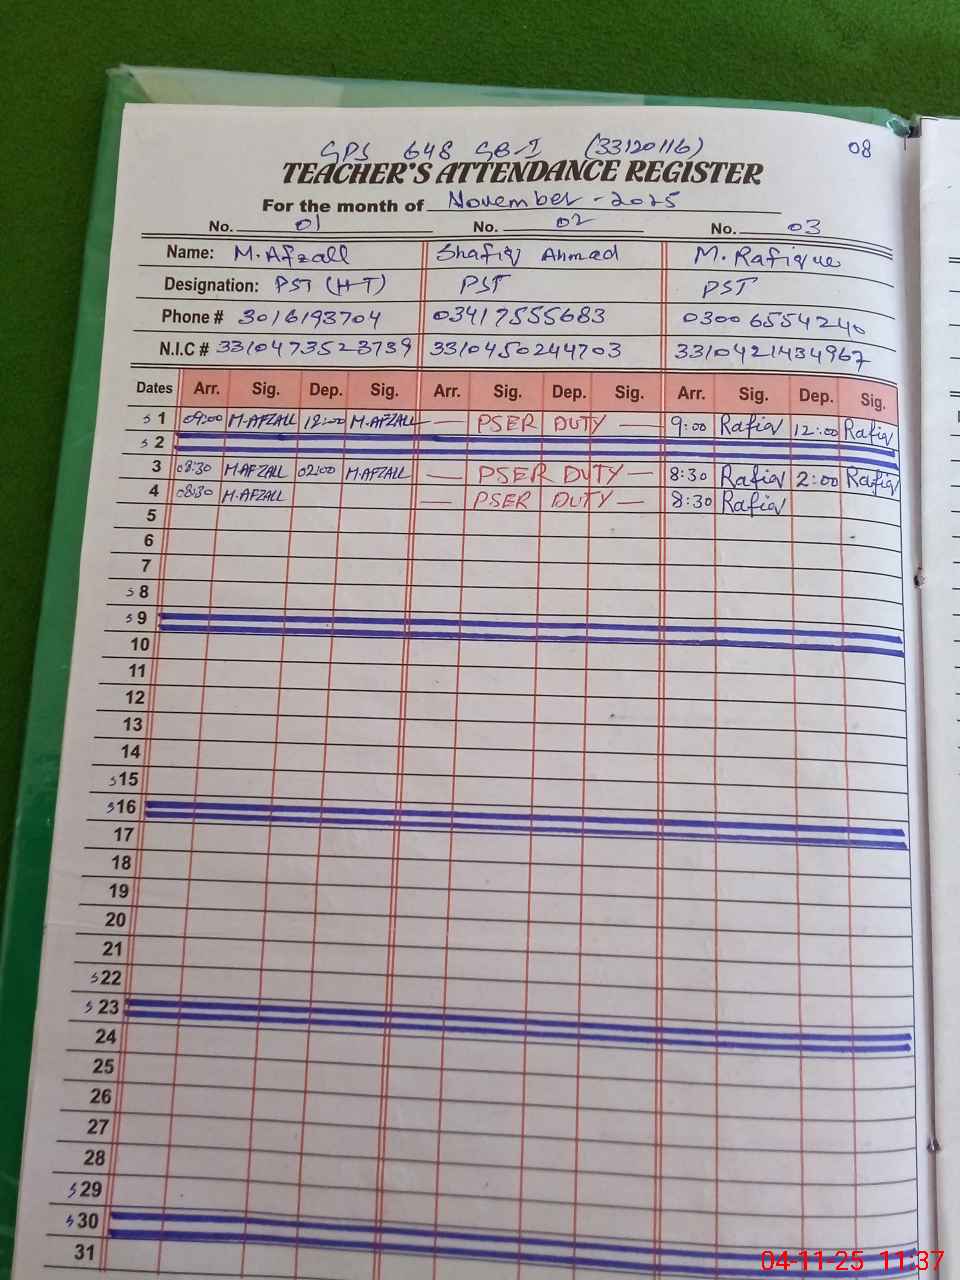 GPS 648 GB-I (33120116) 08
TEACHER'S ATTENDANCE REGISTER
For the month of November - 2025
No. 01 No. 02 No. 03
Name: M.Afzall Shafiq Ahmad M. Rafique
Designation: PST (HT) PST PST
Phone # 3016193704 03417555683 03006554240
N.I.C # 3310473523739 3310450244703 3310421434967
Dates Arr. Sig. Dep. Sig. Arr. Sig. Dep. Sig. Arr. Sig. Dep. Sig.
S 1 09:00 M.AFZALL 12:00 M.AFZALL — PSER DUTY — 9:00 Rafiq 12:00 Rafiq
S 2
3 08:30 M.AFZALL 02:00 M.AFZALL — PSER DUTY — 8:30 Rafiq 2:00 Rafiq
4 08:30 M.AFZALL — PSER DUTY — 8:30 Rafiq
5
6
7
S 8
S 9
10
11
12
13
14
S 15
S 16
17
18
19
20
21
S 22
S 23
24
25
26
27
28
S 29
S 30
31
04-11-25 11:37